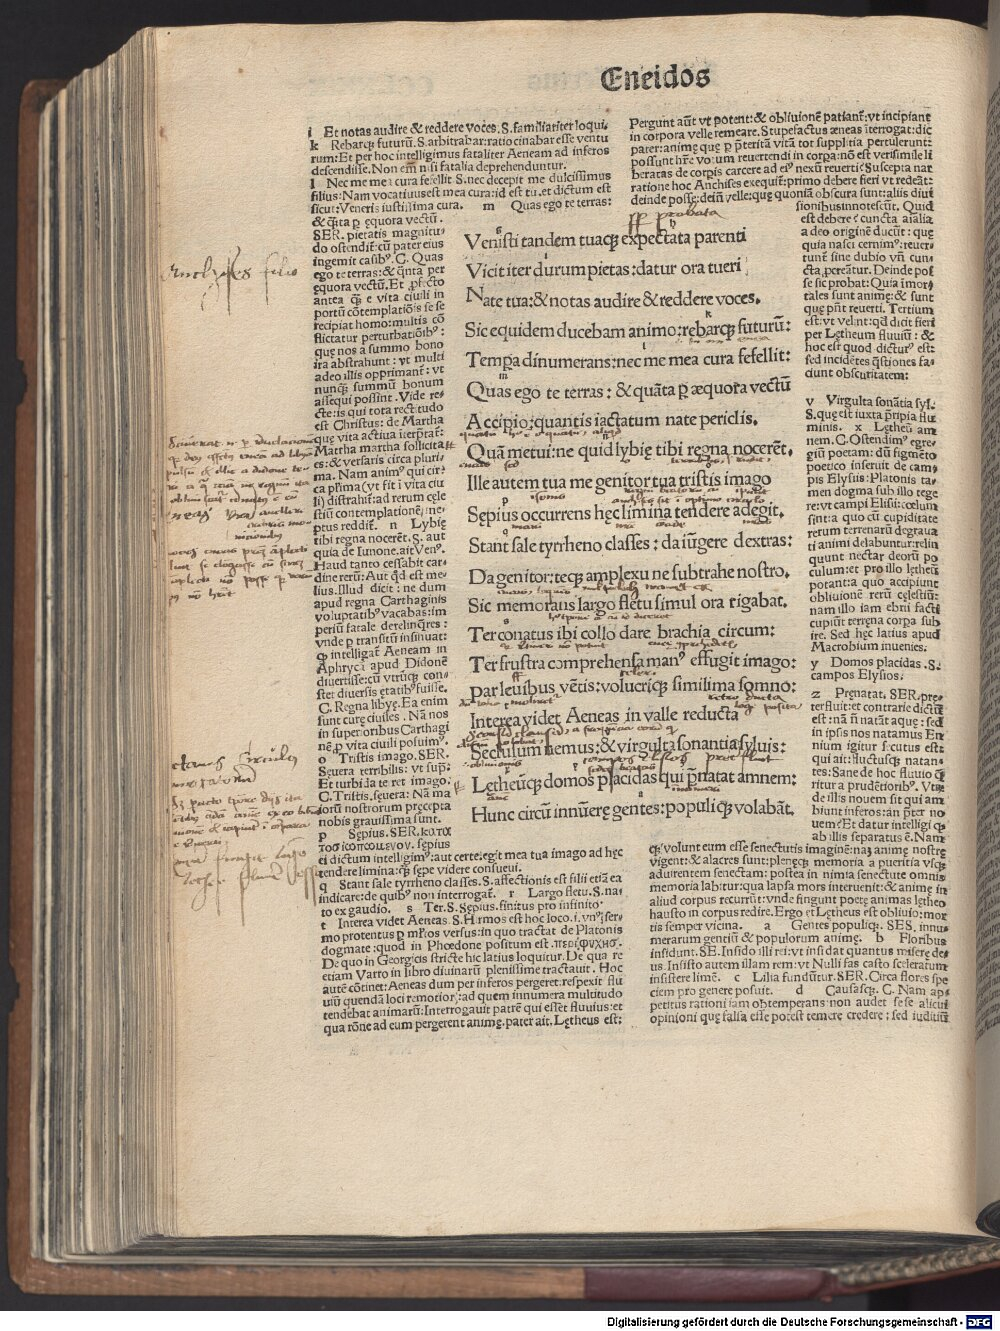 Eneidos
i Et notas audire & reddere voces. S. familiariter loqui.
k Rebarq; futurũ. S. arbitrabar: ratiocinabar esse ventu
rum: Et per hoc intelligimus fataliter Aeneam ad inferos
descendisse. Non em̃ nisi fatalia deprehenduntur.
l Nec me mea cura fefellit S. nec decepit me dulcissimus
filius: Nam vocatiuus est mea cura: id est tu. et dictum est
sicut: Veneris iustissima cura. m Quas ego te terras:
& q̃ta p equora vectũ.
SER. pietatis magnitu
do ostendit̃: cũ pater eius
ingemit casibꝰ. C. Quas
ego te terras: & q̃nta per
ęquora vectũ. Et ,pfecto
antea q̃ e vita ciuili in
portũ cõtemplatiõis se se
recipiat homo: multis cõ
flictatur perturbatiõibꝰ:
quę nos a summo bono
ita abstrahunt: vt multi
adeo illis opprimant̃: vt
nunq̃ summũ bonum
assequi possint. Vide re-
cte: is qui tota rectitudo
est Christus: de Martha
que vita actiua iterp̃tat̃:
Martha martha sollicita
es: & versaris circa pluri-
ma. Nam animꝰ qui cir-
ca p̃lima (vt fit i vita ciui
li) distrahit̃: ad rerum cęle
stiũ contemplationẽ: ine-
ptus reddit̃. n Lybię
tibi regna nocerẽt. S. aut
quia de Iunone. ait Venꝰ.
Haud tanto cessabit car-
dine rerũ: Aut q̃d est me-
lius. Illud dicit: ne dum
apud regna Carthaginis
voluptatibꝰ vacabas: im
periũ fatale derelinq̃res:
vnde p transitũ insinuat:
q intelligat̃ Aeneam in
Aphryca apud Didonẽ
diuertisse: cũ vtrũq; con-
stet diuersis ętatibꝰ fuisse.
C. Regna libyę. Ea enim
sunt curę ciuiles. Nã nos
in superioribus Carthagi
nẽ p vita ciuili posuimꝰ.
o Tristis imago. SER.
Seuera terribilis: vt sup̃:
Et turbida te ret imago.
C. Tristis. seuera: Nã ma
iorũ nostrorum p̃recepta
nobis grauissima sunt.
p Sępius. SER. κατα
τοσιωπωμενου. sępius
ei dictum intelligimꝰ: aut certe: egit mea tua imago ad hęc
tendere limina: q̃ sępe videre consueui.
q Stant sale tyrrheno classes. S. affectionis est filii etiã ea
indicare: de quibꝰ non interrogat̃. r Largo fletu. S. na-
to ex gaudio. s Ter. S. Sępius. finitus pro infinito.
t Interea videt Aeneas. S. Hirmos est hoc loco. i. vnꝰ ser-
mo protentus p mltos versus: in quo tractat de Platonis
dogmate: quod in Phœdone positum est. περὶ ψυχησ.
De quo in Georgicis stricte hic latius loquitur. De qua re
etiam Varro in libro diuinarũ plenissime tractauit. Hoc
autẽ cõtinet: Aeneas dum per inferos pergeret: respexit flu
uiũ quendã loci remotior: ad quem innumera multitudo
tendebat animarũ: Interrogauit patrẽ qui esset fluuius: et
qua rõne ad eum pergerent animę. pater ait. Lętheus est:
Venisti tandem tuaq; expectata parenti
Vicit iter durum pietas: datur ora tueri
Nate tua: & notas audire & reddere voces.
Sic equidem ducebam animo: rebarq; futurũ:
Tempa dinumerans: nec me mea cura fefellit:
Quas ego te terras: & quãta p æquora vectũ
Accipio: quantis iactatum nate periclis.
Quã metui: ne quid lybię tibi regna nocerẽt.
Ille autem tua me genitor tua tristis imago
Sępius occurrens hęc limina tendere adegit.
Stant sale tyrrheno classes: da iũgere dextras:
Da genitor: teq; amplexu ne subtrahe nostro.
Sic memorans largo fletu simul ora rigabat.
Ter conatus ibi collo dare brachia circum:
Ter frustra comprehensa manꝰ effugit imago:
Par leuibus vẽtis: volucriq; similima somno:
Interea videt Aeneas in valle reducta
Seclusum nemus: & virgulta sonantia syluis:
Lętheũq; domos placidas qui p̃natat amnem:
Hunc circũ innũerę gentes: populiq; volabãt.
Pergunt aũt vt potent: & obliuionẽ patiant̃: vt incipiant
in corpora velle remeare. Stupefactus æneas iterrogat: dic
parer: animę que p p̃teritã vitã tot supplitia pertulerunt:
possunt hr̃e votum reuertendi in corpa: nõ est verisimile li
beratas de corpis carcere ad eiꝰ nexũ reuerti: Suscepta nar
ratione hoc Anchises exequit̃: primo debere fieri vt redeãt:
deinde posse: deiñ velle: quę quoniã obscura sunt: aliis diui
sionibus innotescũt. Quid
est debere? cuncta aialia
a deo originẽ ducũt: quę
quia nasci cernimꝰ: reuer-
tunt̃ sine dubio vñ cun-
cta ,pcreãtur. Deinde pos
se sic probat: Quia imor-
tales sunt animę: & sunt
quę pñt reuerti. Tertium
est: vt velint: qd dicit fieri
per Lętheum fluuiũ: &
hoc est quod dicturꝰ est:
sed incidẽtes q̃stiones fa-
ciunt obscuritatem:
v Virgulta sonãtia syl.
S. quę est iuxta p̃ripia flu
minis. x Lętheũ am
nem. C. Ostendimꝰ egre-
giũ poetam: dũ figmẽto
poetico inseruit de cam-
pis Elysiis: Platonis ta-
men dogma sub illo tege
re: vt campi Elisii: cœlum
sint: a quo cũ cupiditate
rerum terrenarũ degraua
ti animi delabuntur: relin
quunt nectar deorũ po
culum: et pro illo lętheũ
potant: a quo accipiunt
obliuionẽ rerũ cęlestiũ:
nam illo iam ebrii facti
cupiũt terrena corpa sub
ire. Sed hęc latius apud
Macrobium inuenies.
y Domos placidas. S.
campos Elysios.
z Pręnatat. SER. pre-
terfluit: et contrarie dictũ
est: nã ñ natãt aquę: sed
in ipsis nos natamus En
nium igitur secutus est:
qui ait: fluctusq; natan-
tes: Sane de hoc fluuio q̃
ritur a prudẽtioribꝰ. Vtrũ
de illis nouem sit qui am
biunt inferos: an pręter no
uem? Et datur intelligi q
ab illis separatus ẽ. Nam
q; volunt eum esse senectutis imaginẽ: naȝ animę nostrę
vigent: & alacres sunt: plenęq; memoria a pueritia vsq;
ad virentem senectam: postea in nimia senectute omnis
memoria labitur: qua lapsa mors interuenit: & animę in
aliud corpus recurrũt: vnde fingunt poetę animas lętheo
hausto in corpus redire. Ergo et Lętheus est obliuio: mor
tis semper vicina. a Gentes populiq;. SES. innu-
merarum gentiũ & populorum animę. b Floribus
insidunt. SE. Insido illi rei: vt insidat quantus miserę de-
us. Insisto autem illam rem: vt Nulli fas casto sceleratum
insistere limẽ. c Lilia fundũtur. SER. Circa flores spe
ciem pro genere posuit. d Causasq;. C. Nam ap-
petitus rationi iam obtemperans: non audet se se alicui
opinioni quę falsa esse potest temere credere: sed iuditiũ
Digitalisierung gefördert durch die Deutsche Forschungsgemeinschaft - DFG